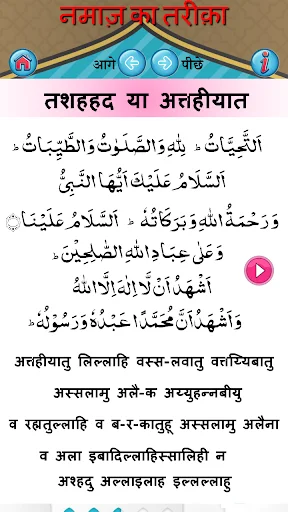 नमाज़ का तरीक़ा
आगे पीछे
तशहहद या अत्तहीयात
اَلتَّحِیَّاتُ لِلّٰهِ وَالصَّلَوٰتُ وَالطَّیِّبَاتُ
اَلسَّلَامُ عَلَیْكَ اَیُّهَا النَّبِیُّ
وَرَحْمَةُ اللّٰهِ وَبَرَكَاتُهٗ اَلسَّلَامُ عَلَیْنَا
وَعَلٰی عِبَادِ اللّٰهِ الصّٰلِحِیْنَ
اَشْهَدُ اَنْ لَّا اِلٰهَ اِلَّا اللّٰهُ
وَاَشْهَدُ اَنَّ مُحَمَّدًا عَبْدُهٗ وَرَسُوْلُهٗ
अत्तहीयातु लिल्लाहि वस्स-लवातु वत्तय्यिबातु
अस्सलामु अलै-क अय्युहन्नबीयु
व रह्मतुल्लाहि व ब-र-कातुहू अस्सलामु अलैना
व अला इबादिल्लाहिस्सालिही न
अश्हदु अल्लाइलाह इल्लल्लाहु